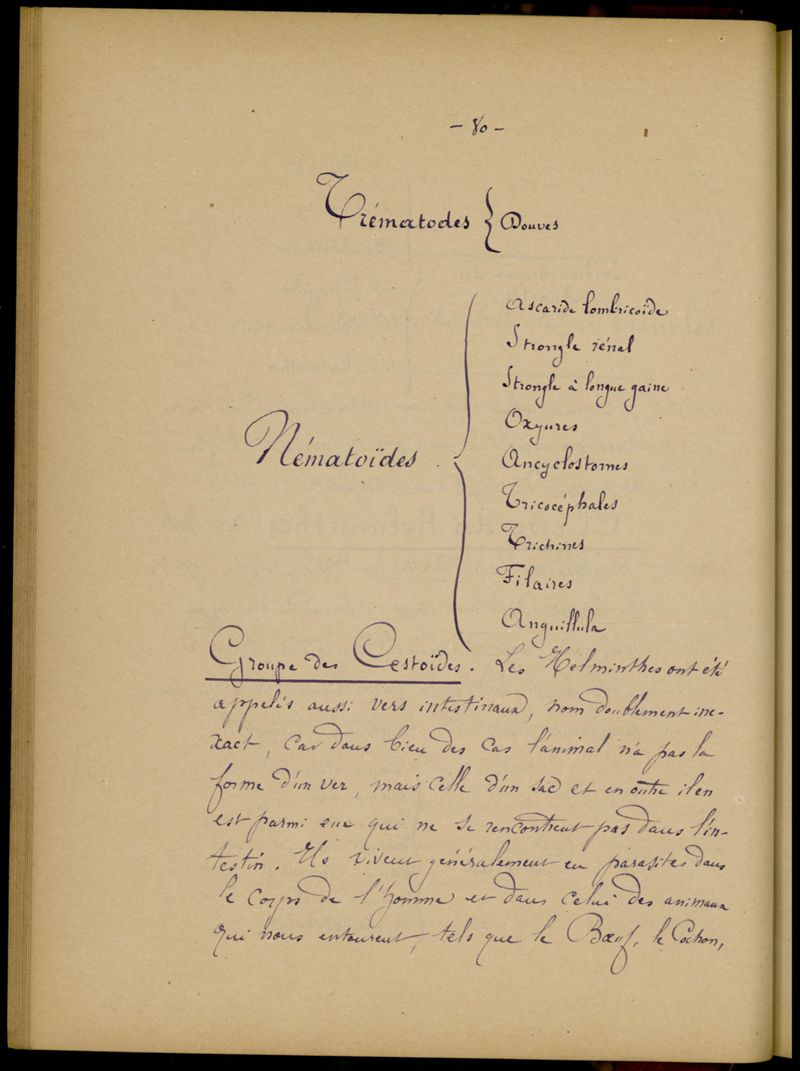 — 80 —
Trématodes { Douves
Ascaride lombricoïde
Strongle rénal
Strongle à longue gaine
Oxyures
Nématoïdes {
Ancyclostomes
Tricocéphales
Trichines
Filaires
Anguillula
Groupe des Cestoïdes. Les Helminthes ont été
appelés aussi vers intestinaux, nom doublement ine-
xact, car dans bien des cas l'animal n'a pas la
forme d'un ver, mais celle d'un sac et en outre il en
est parmi eux qui ne se rencontrent pas dans l'in-
testin. Ils vivent généralement en parasites dans
le corps de l'homme et dans celui des animaux
qui nous entourent, tels que le Bœuf, le Cochon,